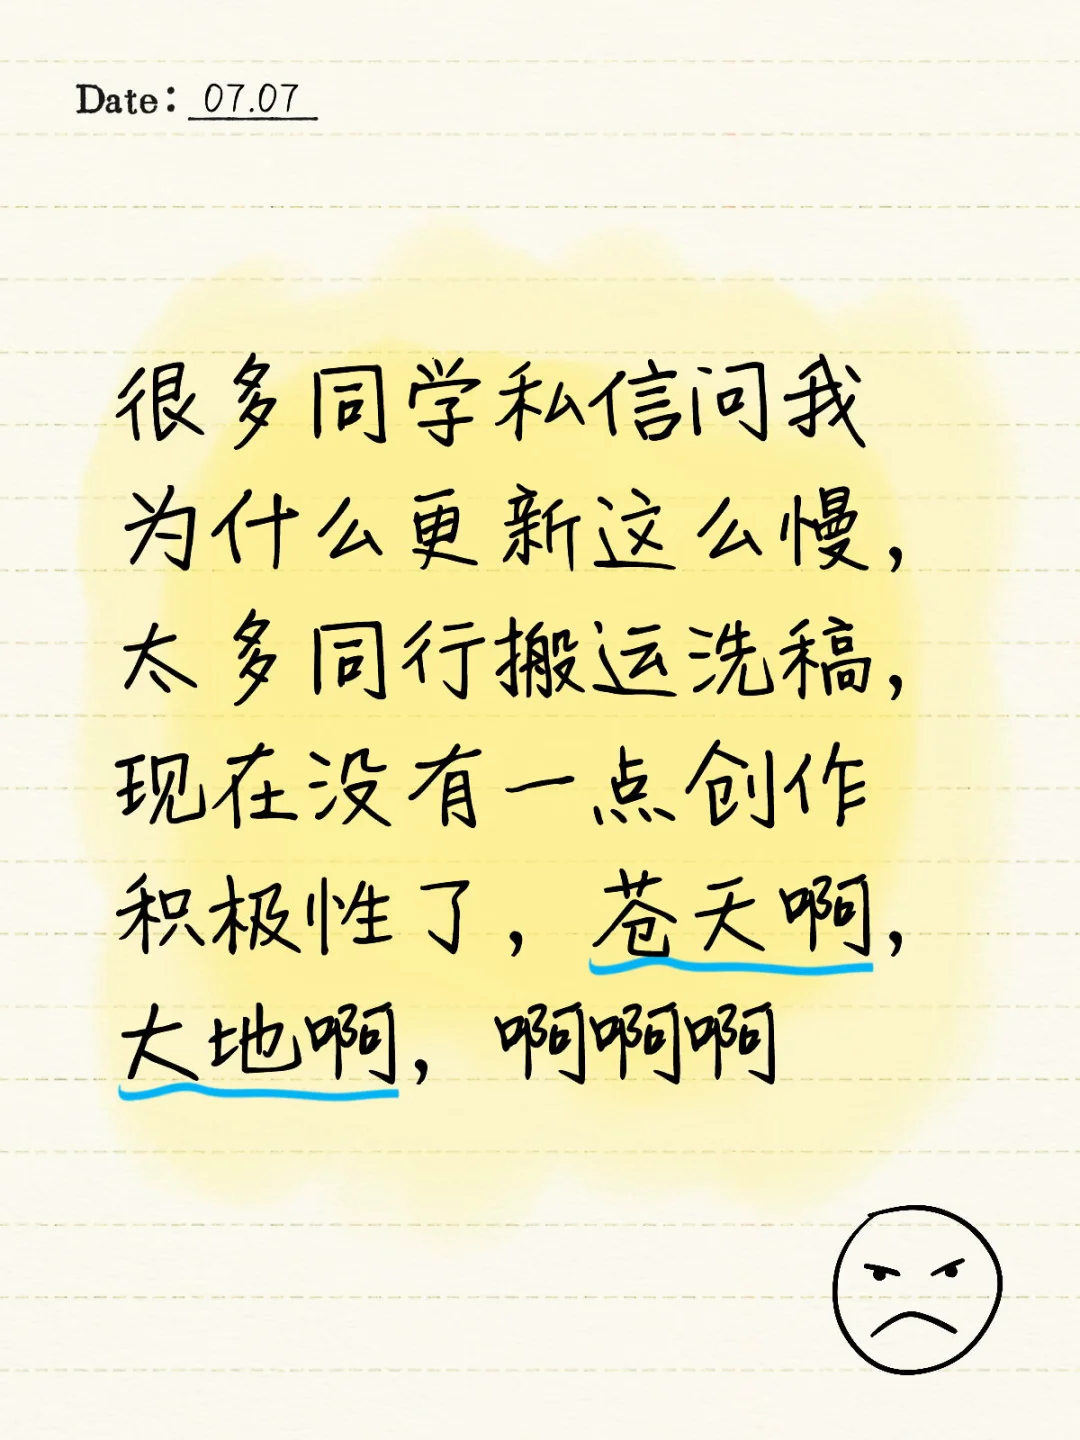 Date: 07.07
很多同学私信问我
为什么更新这么慢，
太多同行搬运洗稿，
现在没有一点创作
积极性了，苍天啊，
大地啊，啊啊啊